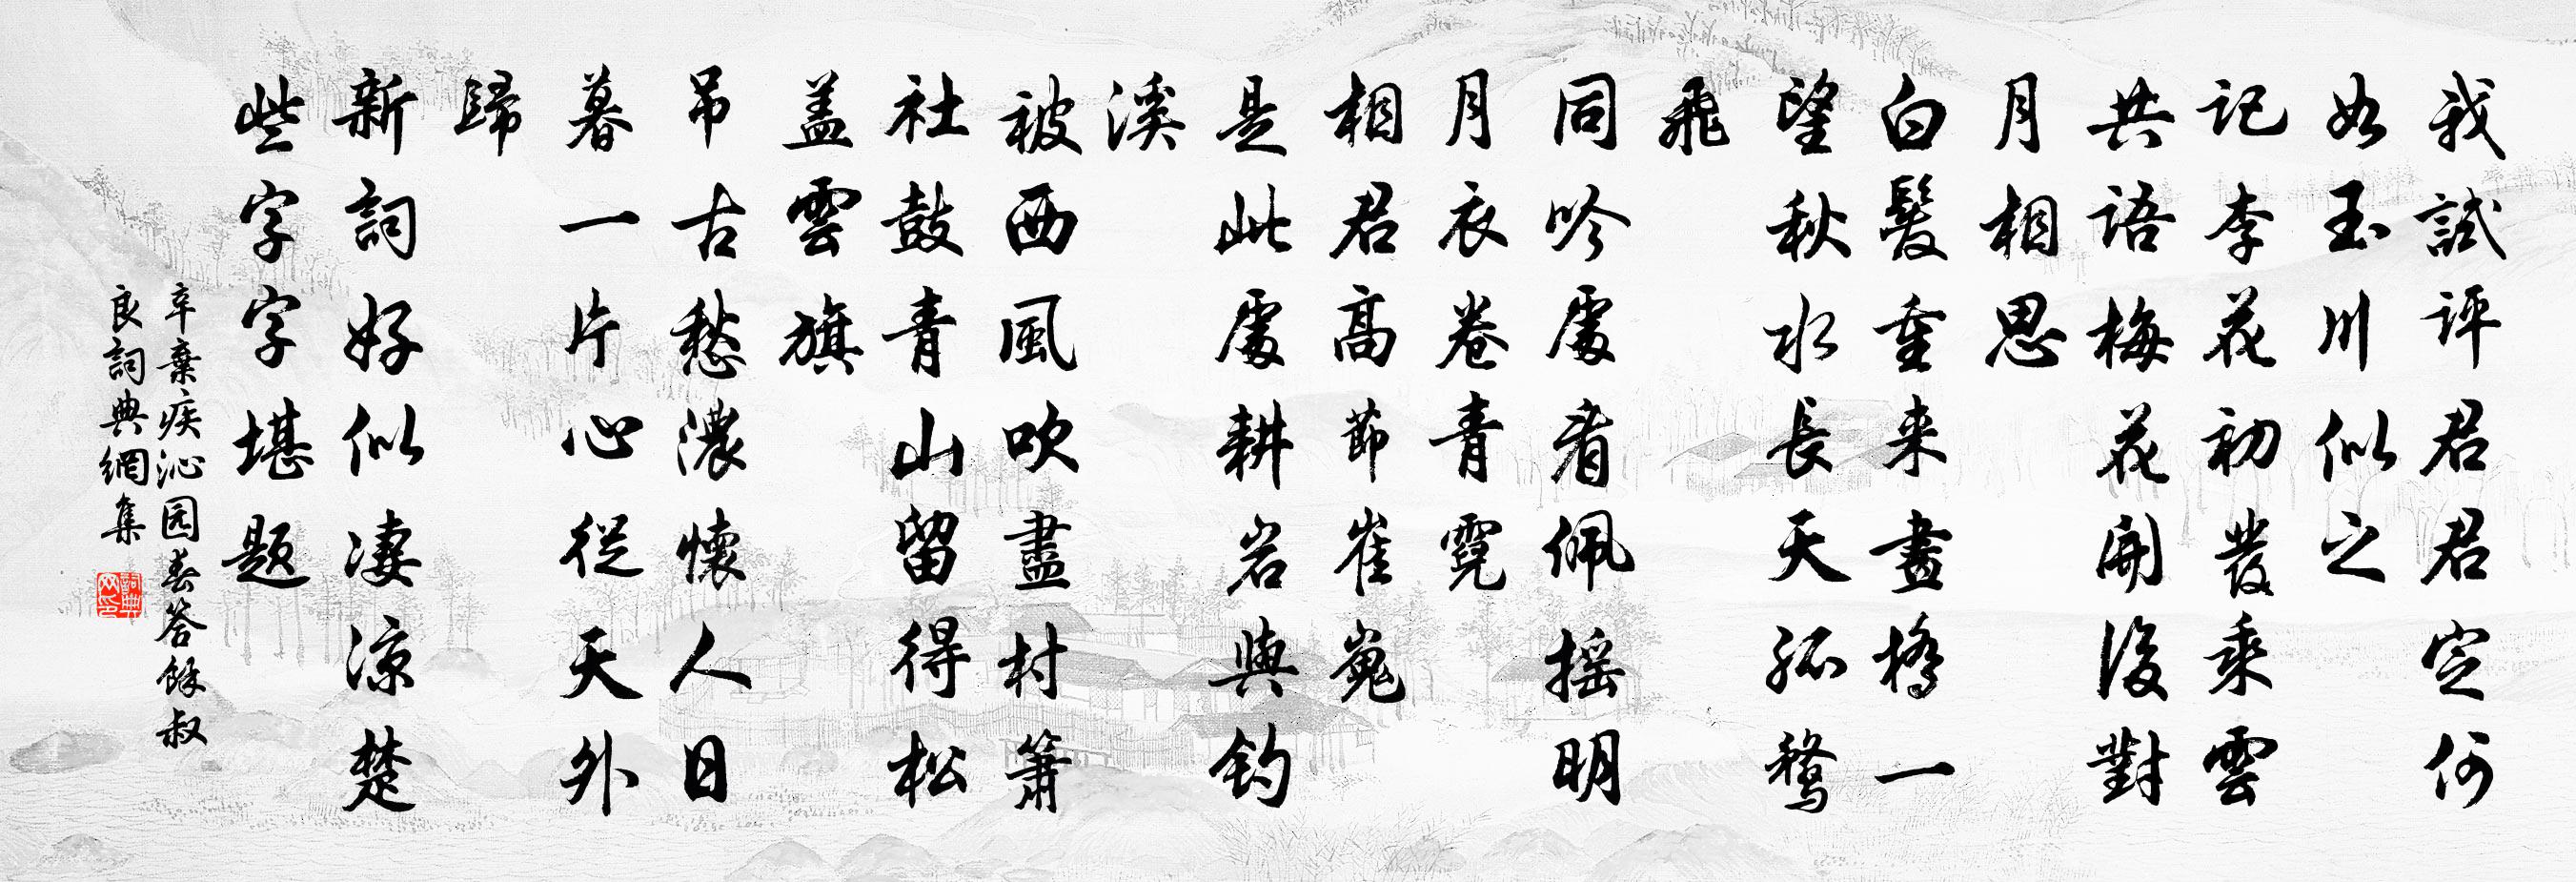 我試评君君定何
如玉川似之
记李花初發乘雲
共语梅花開後對
月相思
白髮重来畫橋一
望秋水長天孤鶩
飛
同吟處看佩摇明
月衣卷青霓
相君高節崔嵬
是此處耕岩與钓
溪
被西風吹盡村簫
社鼓青山留得松
盖雲旗
吊古愁濃懷人日
暮一片心從天外
歸
新詞好似凄凉楚
些字字堪题
辛棄疾沁园春答餘叔
良詞典網集
詞典网印